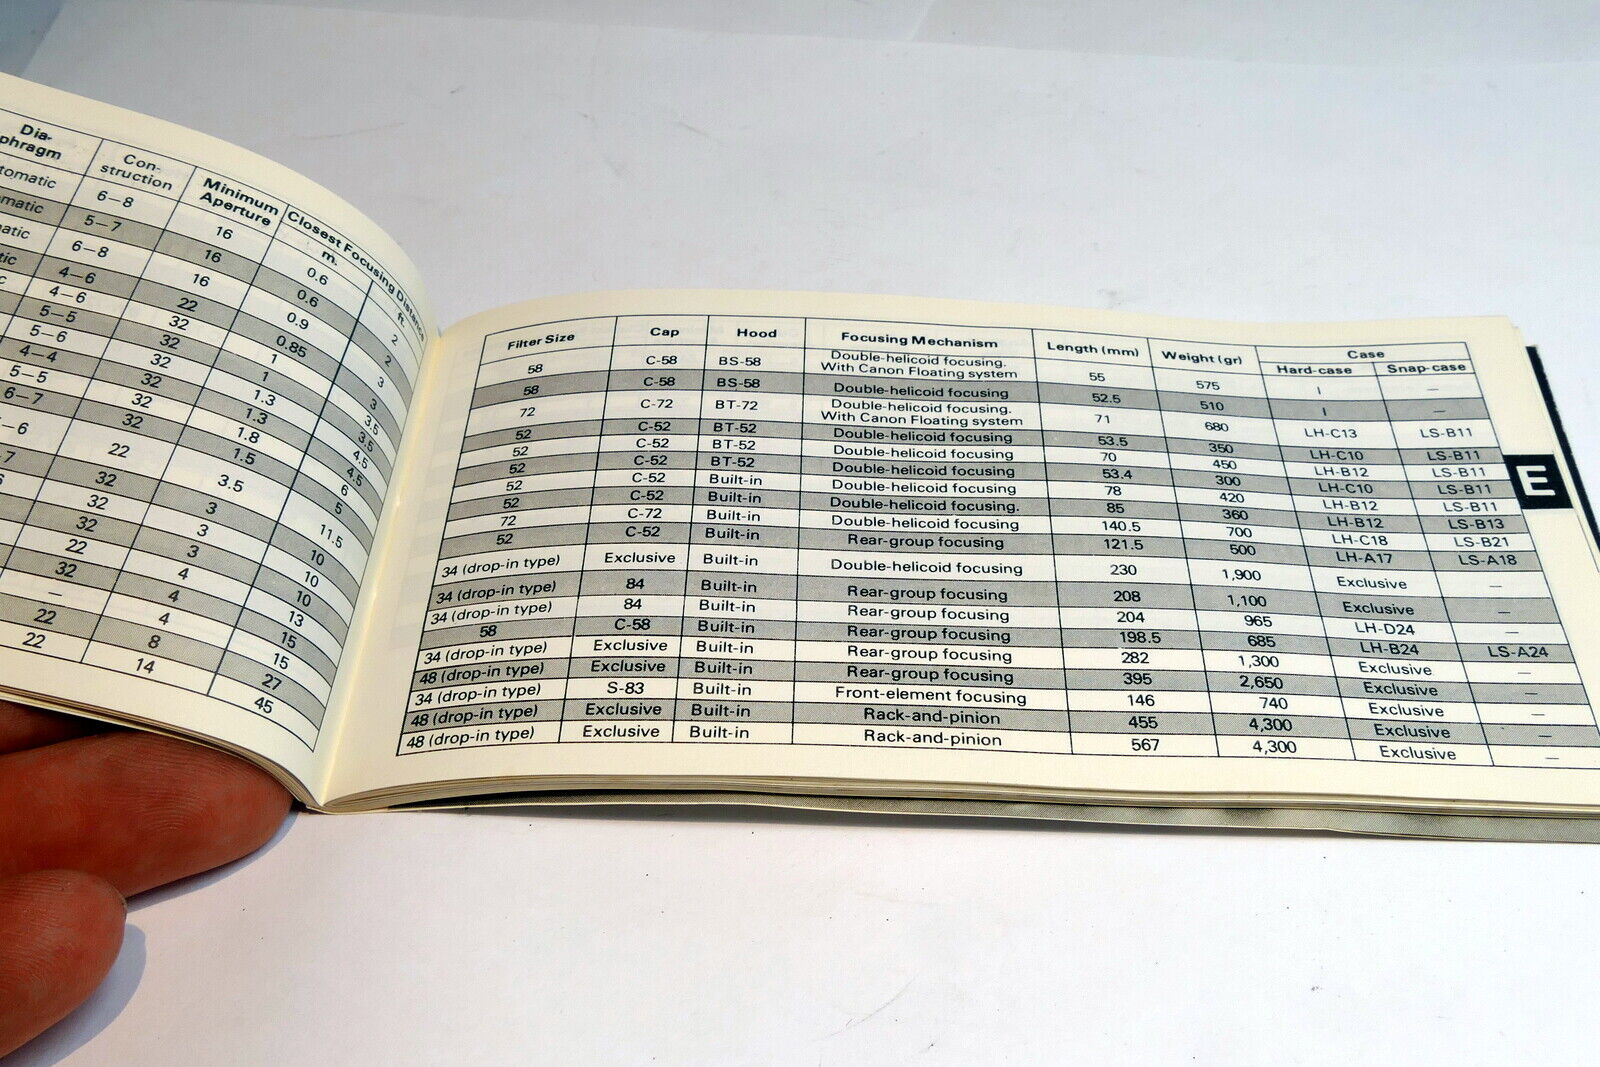 Dia-
phragm
Con-
struction
Minimum
Aperture
Closest Focusing Distance
m. ft.
6–8 16 0.6 2
5–7 16 0.6 2
6–8 16 0.9 3
4–6 22 0.85 3
4–6 32 1 3.5
5–5 32 1 3.5
5–6 32 1.3 4.5
4–4 32 1.3 4.5
5–5 32 1.8 6
6–7 32 1.5 5
–6 22 3.5 11.5
32 3 10
32 3 10
32 3 10
22 4 13
32 4 15
– 4 15
22 8 27
22 14 45
Filter Size Cap Hood Focusing Mechanism Length (mm) Weight (gr) Case
Hard-case Snap-case
58 C-58 BS-58 Double-helicoid focusing.
With Canon Floating system 55 575 I —
58 C-58 BS-58 Double-helicoid focusing 52.5 510 I —
72 C-72 BT-72 Double-helicoid focusing.
With Canon Floating system 71 680 LH-C13 LS-B11
52 C-52 BT-52 Double-helicoid focusing 53.5 350 LH-C10 LS-B11
52 C-52 BT-52 Double-helicoid focusing 70 450 LH-B12 LS-B11
52 C-52 BT-52 Double-helicoid focusing 53.4 300 LH-C10 LS-B11
52 C-52 Built-in Double-helicoid focusing 78 420 LH-B12 LS-B11
52 C-52 Built-in Double-helicoid focusing. 85 360 LH-B12 LS-B13
72 C-72 Built-in Double-helicoid focusing 140.5 700 LH-C18 LS-B21
52 C-52 Built-in Rear-group focusing 121.5 500 LH-A17 LS-A18
34 (drop-in type) Exclusive Built-in Double-helicoid focusing 230 1,900 Exclusive —
34 (drop-in type) 84 Built-in Rear-group focusing 208 1,100 Exclusive —
34 (drop-in type) 84 Built-in Rear-group focusing 204 965 LH-D24 —
58 C-58 Built-in Rear-group focusing 198.5 685 LH-B24 LS-A24
34 (drop-in type) Exclusive Built-in Rear-group focusing 282 1,300 Exclusive —
48 (drop-in type) Exclusive Built-in Rear-group focusing 395 2,650 Exclusive —
34 (drop-in type) S-83 Built-in Front-element focusing 146 740 Exclusive —
48 (drop-in type) Exclusive Built-in Rack-and-pinion 455 4,300 Exclusive —
48 (drop-in type) Exclusive Built-in Rack-and-pinion 567 4,300 Exclusive —
E